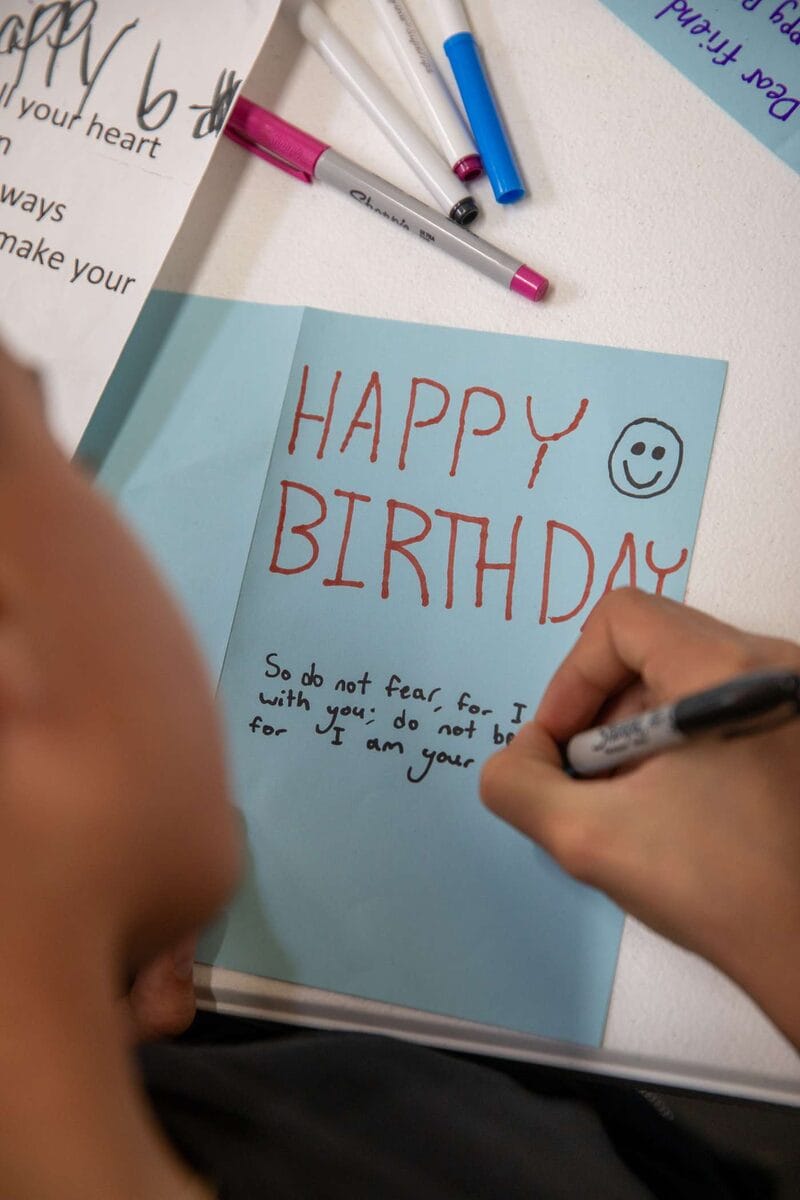 Happy b
ll your heart
n
ways
make your
Sharpie
Dear friend
HAPPY
BIRTHDAY
So do not fear, for I
with you; do not be
for I am your